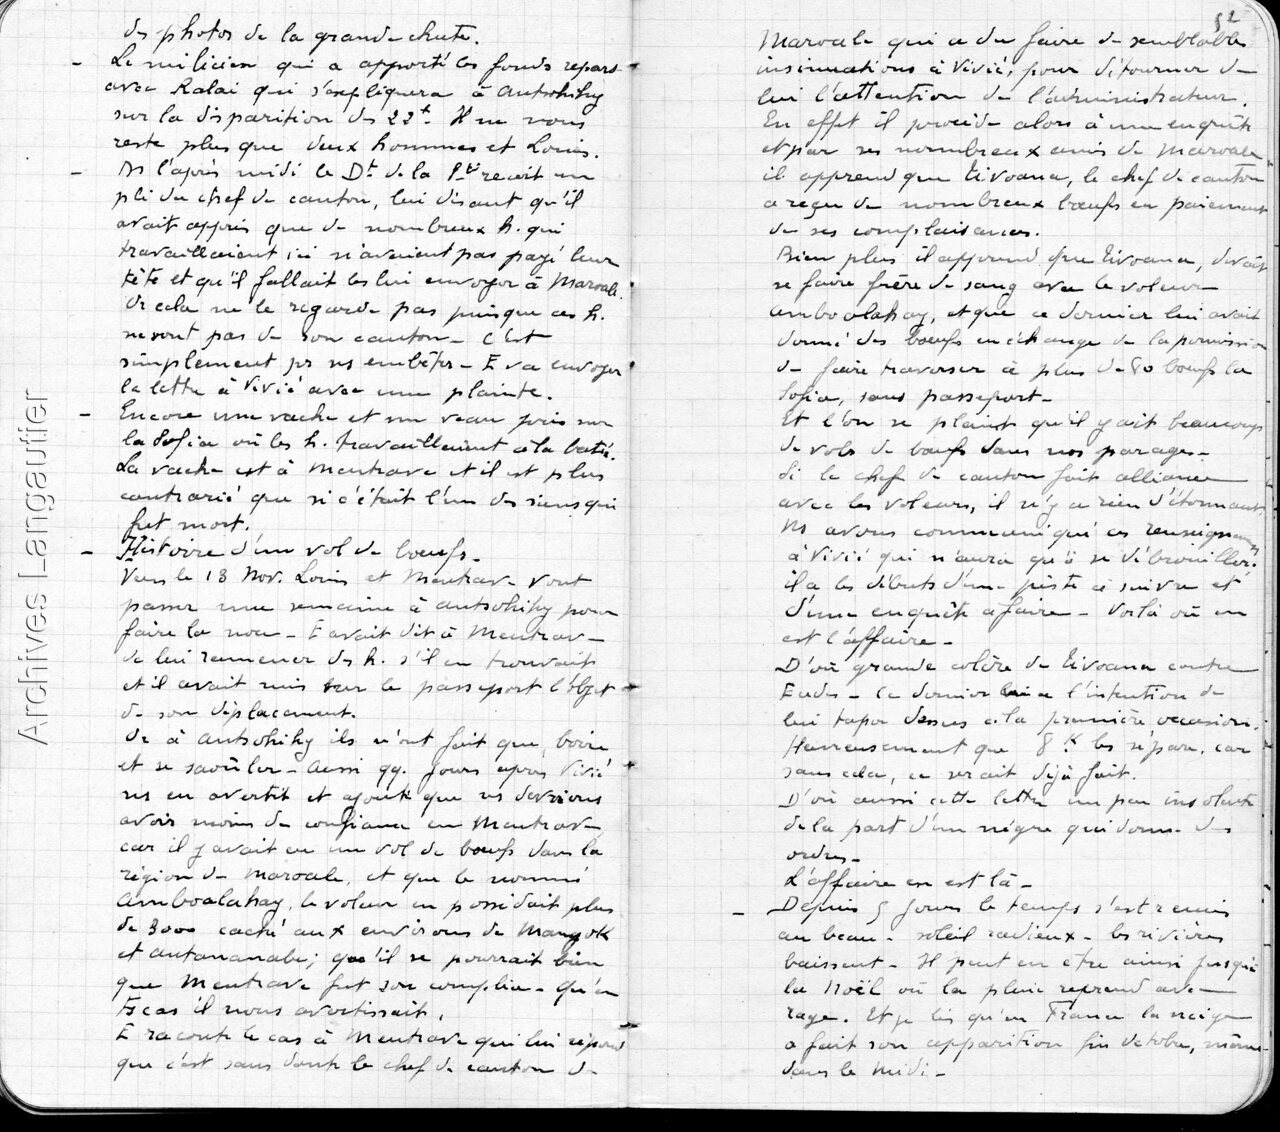 des photos de la grande chute.
- Le milicien qui a apporté les fonds repart
avec Ralai qui s'expliquera à Antsohihy
sur la disparition des 22 t. Il ne nous
reste plus que deux hommes et Louis.
- Ds l'après midi le Dt de la Pté reçoit un
pli du chef de canton, lui disant qu'il
avait appris que de nombreux h. qui
travaillaient ici n'avaient pas payé leur
tête et qu'il fallait les lui envoyer à Maroala.
Or cela ne le regarde pas puisque ces h.
ne sont pas de son canton - C'est
simplement pr ns embêter - E va envoyer
la lettre à Vivié avec une plainte.
- Encore une vache et un veau pris sur
la Sofia où les h. travaillaient à la batée.
La vache est à Mentrave et il est plus
contrarié que si c'était l'un des siens qui
fut mort.
- Histoire d'un vol de boeufs -
Vers le 13 Nov. Louis et Mentrave vont
passer une semaine à Antsohihy pour
faire la noce - E avait dit à Mentrave
de lui ramener des h. s'il en trouvait
et il avait mis sur le passeport l'objet
de son déplacement.
Or à Antsohihy ils n'ont fait que boire
et se saoûler - Aussi qq. jours après Vivié
ns en avertit et ajoute que ns devrions
avoir moins de confiance en Mentrave
car il y avait eu un vol de boeufs dans la
région de Maroala, et que le nommé
Amboalahay, le voleur en possédait plus
de 3000 caché aux environs de
et Antananabe; qu'il se pourrait bien
que Mentrave fut son complice - qu'en
ts cas il nous avertissait.
E raconte le cas à Mentrave qui lui répond
que c'est sans doute le chef de canton de
52
Maroala qui a du faire de semblables
insinuations à Vivié, pour détourner de
lui l'attention de l'administrateur.
En effet il procède alors à une enquête
et par ses nombreux amis de Maroala
il apprend que Tivoana, le chef de canton
a reçu de nombreux boeufs en paiement
de ses complaisances.
Bien plus il apprend que Tivoana, devait
se faire frère de sang avec le voleur
Amboalahay, et que ce dernier lui avait
donné des boeufs en échange de la permission
de faire traverser à plus de 80 boeufs la
Sofia, sans passeport -
Et l'on se plaint qu'il y ait beaucoup
de vols de boeufs dans nos parages -
Si le chef de canton fait alliance
avec les voleurs, il n'y a rien d'étonnant
Ns avons communiqué ces renseignements
à Vivié qui n'aura qu'à se débrouiller.
il a les débuts d'une piste à suivre et
d'une enquête à faire - Voilà où en
est l'affaire -
D'où grande colère de Tivoana contre
Eudes - Ce dernier a l'intention de
lui taper dessus à la première occasion.
Heureusement que 8 K. les sépare, car
sans cela, ce serait déjà fait.
D'où aussi cette lettre un peu insolente
de la part d'un nègre qui donne des
ordres -
L'affaire en est là -
- Depuis 5 jours le temps s'est remis
au beau - soleil radieux - les rivières
baissent - Il peut en être ainsi jusqu'à
la Noël où la pluie reprend avec
rage. Et je lis qu'en France la neige
a fait son apparition fin Octobre, même
dans le Midi -
Archives Langautier